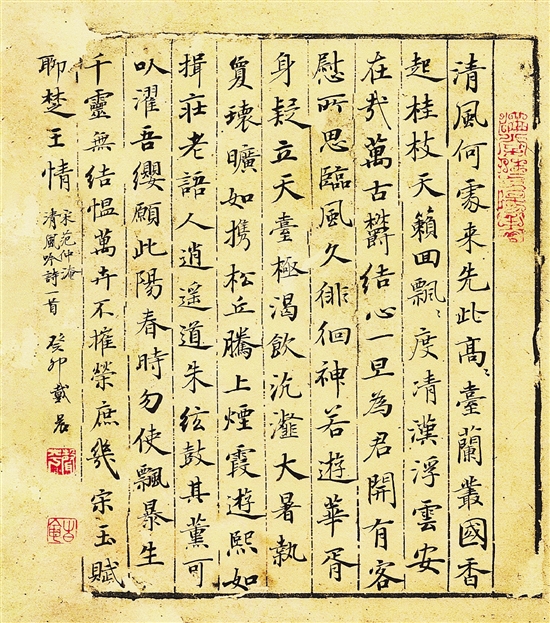 清風何處來先此高〻臺蘭叢國香
起桂枝天籟囬飄〻度清漢浮雲安
在哉萬古欝結心一旦為君開有客
慰所思臨風久徘徊神若遊華胥
身疑立天臺極渴飲沆瀣大暑執
瓌曠如携松丘騰上煙霞遊熙如
揖莊老語人逍遥道朱絃鼓其薰可
以濯吾纓願此陽春時勿使飄暴生
千靈無結愠萬卉不摧榮庶幾宋玉賦
聊楚王情
宋范仲淹
清風吟詩一首
癸卯 戴